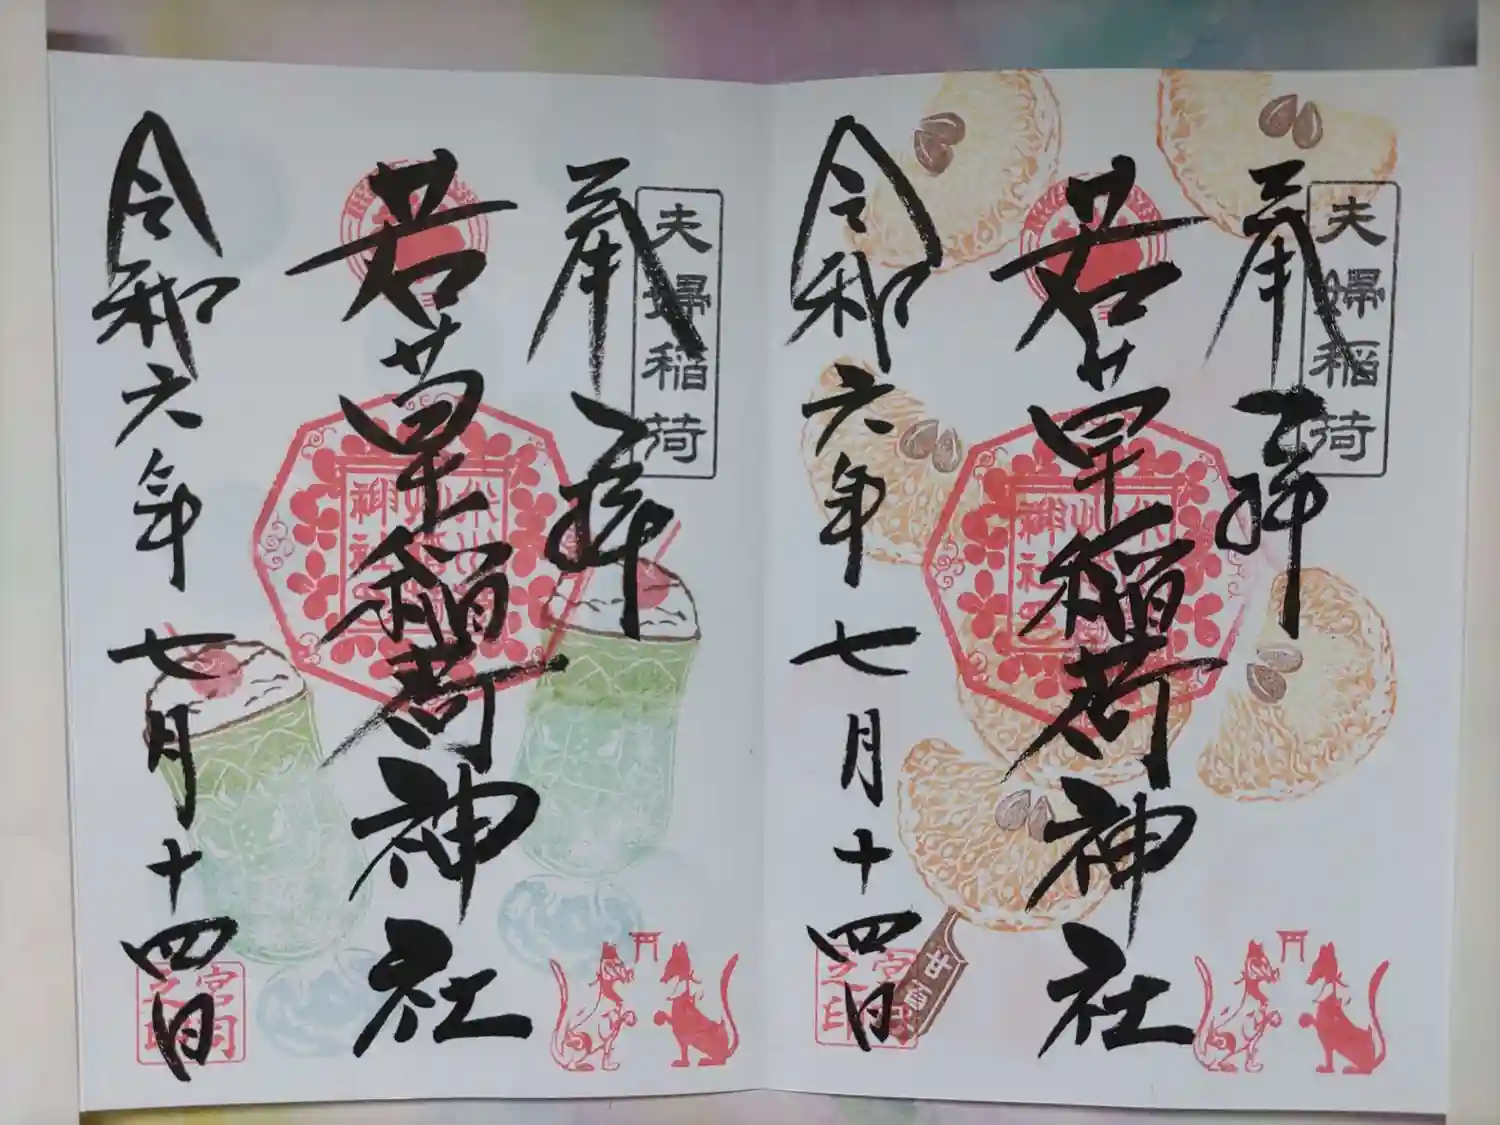 夫婦稲荷
奉拝
若草稲荷神社
令和六年七月十四日
夫婦稲荷
奉拝
若草稲荷神社
令和六年七月十四日